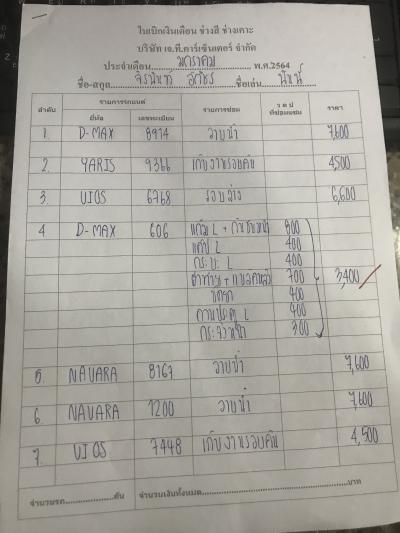 ใบเบิกเงินเดือน ช่างสี ช่างเคาะ
บริษัท เจ.ที.คาร์เซ็นเตอร์ จำกัด
ประจำเดือน มกราคม พ.ศ.2564
ชื่อ-สกุล จิรนันท์ ชื่อเล่น
ลำดับ รายการรถยนต์ รายการซ่อม ว ด ป ที่ซ่อมแซม ราคา
ยี่ห้อ เลขทะเบียน
1. D-MAX 8914 7,600
2. YARIS 9366 เก็บงานรอบคัน 4,500
3. VIOS 6768 รอบล่าง 6,600
4 D-MAX 606 แก้ม L + 800
แค๊ป L 400
กระบะ L 400
ฝาท้าย + 700 3,400
400
กาบประตู L 400
300
5. NAVARA 8167 7,600
6 NAVARA 1200 7,600
7. VIOS 7448 เก็บงานรอบคัน 4,500
จำนวนรถ คัน จำนวนเงินทั้งหมด บาท